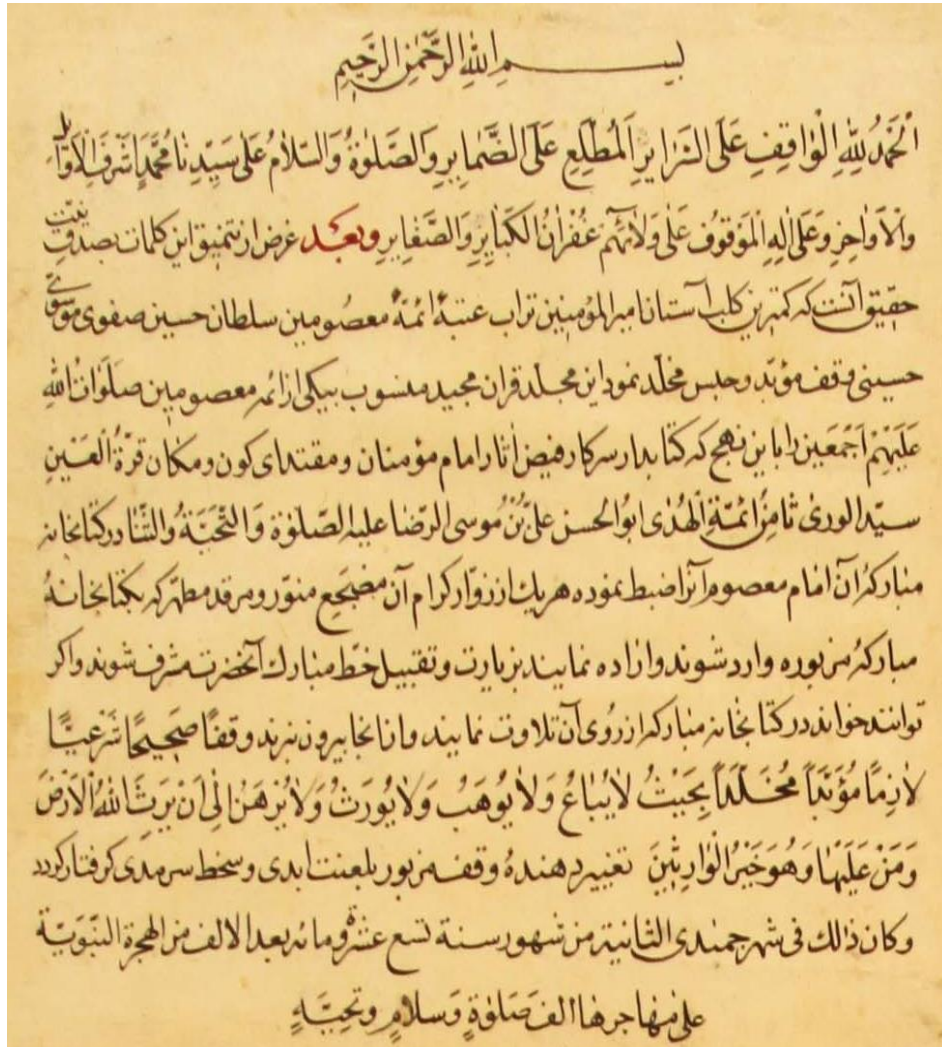 بسم الله الرحمن الرحیم
اَلْحَمْدُ لِلّٰهِ الْوٰاقِفِ عَلَی السَّرٰایِرِ اَلْمُطَّلِعِ عَلَی الضَّمٰایِرِ وَالصَّلٰوةُ وَالسَّلاٰمُ عَلٰی سَیِّدِنٰا مُحَمَّدٍ اَشْرَفِ الْاَوٰایِلِ
وَالْاَوٰاخِرِ وَعَلٰی اٰلِهِ الْمَوْقُوفِ عَلٰی وَلاٰئِهِمْ غُفْرٰانُ الْکَبٰایِرِ وَالصَّغٰایِرِ وَبَعْد غرض از تنمیق این کلمات بصدق نیت
حقیق آنست که کمترین کلب آستان امیر المؤمنین تراب عتبهٔ ائمهٔ معصومین سلطان حسین صفوی موسوی
حسینی وقف مؤبّد وحبس مخلّد نمود این مجلد قران مجید منسوب بیکی از ائمه معصومین صَلَوٰاتُ اللّٰهِ
عَلَیْهِمْ اَجْمَعین را باین نهج که کتابدار سرکار فیض اٰثار امام مؤمنان ومقتدای کون ومکان قُرَّةُ الْعَیْنِ
سیّد الوری ثٰامِنُ اَئِمَّةِ الْهُدٰی ابوُ الحسن علیُّ بْنُ مُوسی الرّضٰا علیه الصّلوٰة وَالتَّحِیَّةُ والثَّنٰا در کتابخانه
مبارکهٔ آن امام معصوم آنرا ضبط نموده هریک از زوّار کرام آن مضجع منوّر ومرقد مطهّر که بکتابخانهٔ
مبارکهٔ مزبوره وارد شوند واراده نمایند بزیارت وتقبیل خطّ مبارک آنحضرت مشرف شوند واکر
توانند خواند در کتابخانه مبارکه از رُوی آن تلاوت نمایند واز انجا بیرون نبرند وقفًا صَحیحًا شَرْعیًّا
لاٰزِمًا مُؤَبَّدًا مُخَلَّدًا بِحَیْثُ لاٰیُبٰاعُ وَلاٰیُوهَبُ وَلاٰیُورَثُ وَلاٰیُرْهَنُ اِلٰی اَنْ یَرِثَ اللّٰهُ الْاَرْضَ
وَمَنْ عَلَیْهٰا وَهُوَ خَیْرُ الْوٰارِثِینَ تغییر دهندهٔ وقف مزبور بلعنت ابدی وسخط سرمدی کرفتار کردد
وکان ذٰلک فی شهر جمیدی الثانیة من شهور سنة تسع عشرة ومائه بعد الالف من الهجرة النبّویّة
علی مهٰاجرهٰا الف صَلوٰةٍ وَسلامٍ وتحِیَّةٍ